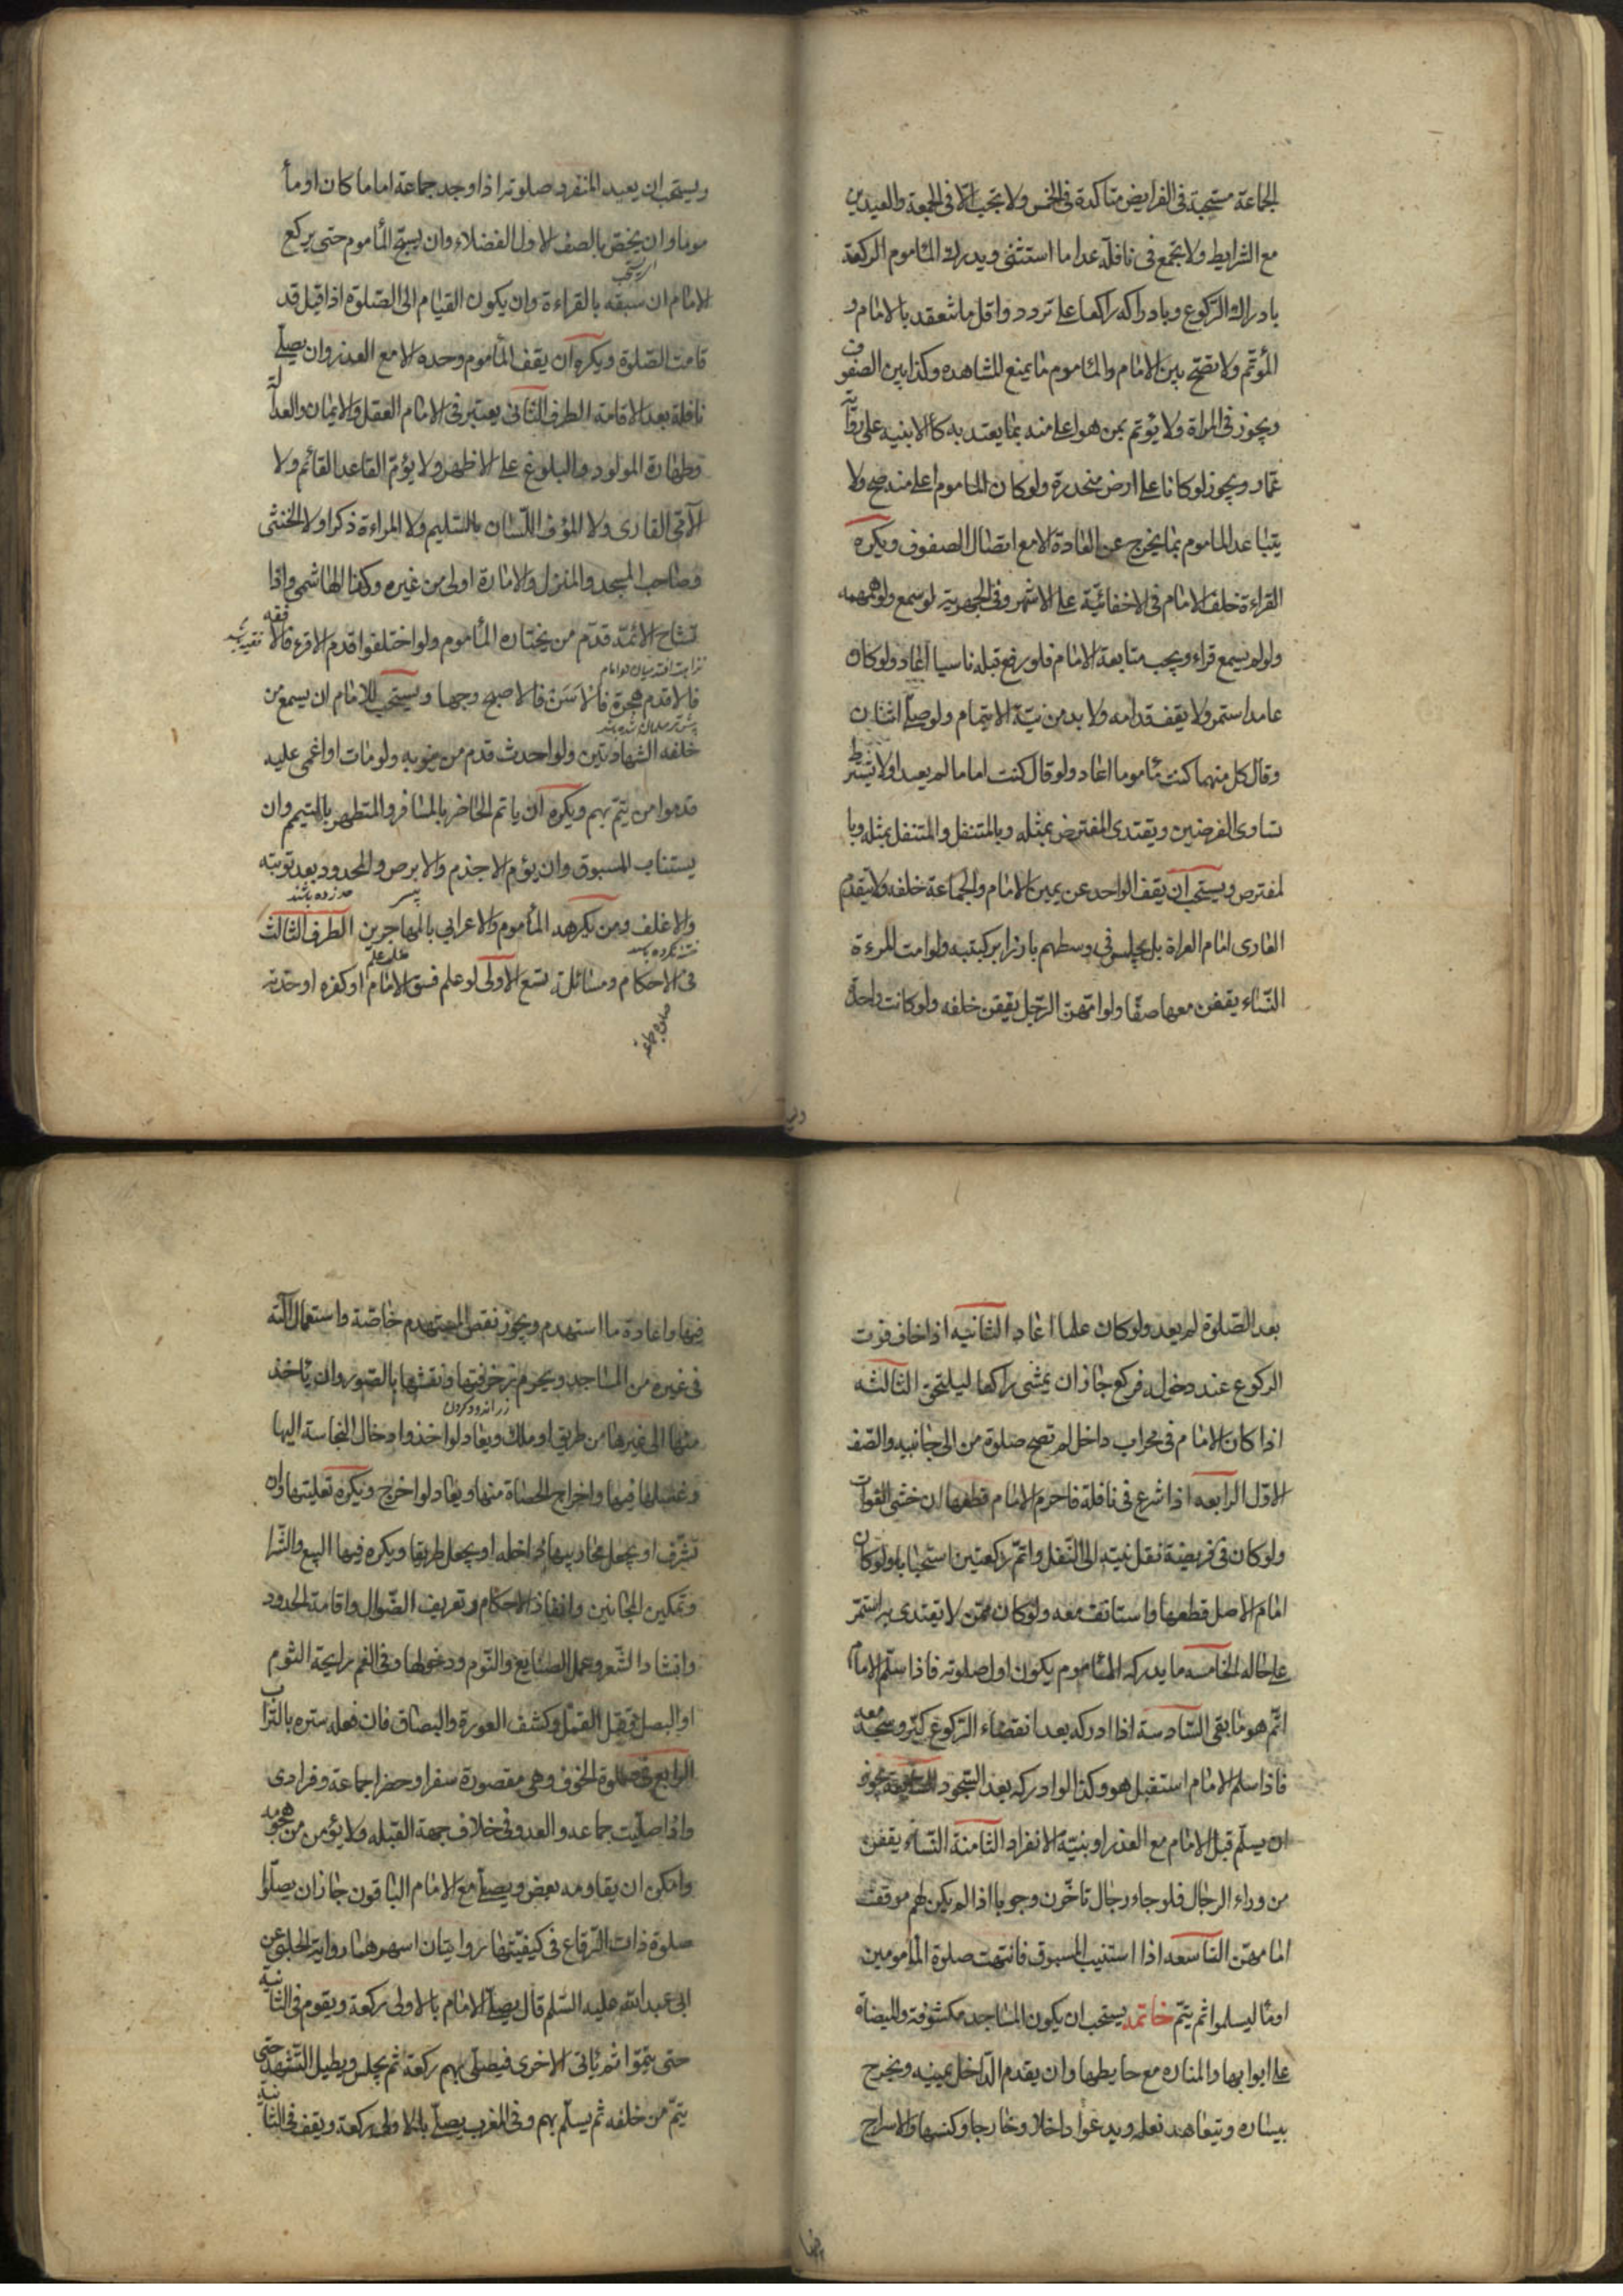 الجماعة مستحبة في الفرايض متاكدة في الخمس ولا تجب الا في الجمعة والعيدين
مع الشرايط ولا تجمع في نافلة عدا ما استثنى ويدرك المأموم الركعة
بادراك الركوع وبادراكه راكعا على تردد واقل ما تنعقد بالامام و
المؤتم ولا تصح بين الامام والمأموم ما يمنع المشاهده وكذا بين الصفوف
ويجوز في المراة ولا يؤتم بمن هو اعلى منه بما يعتد به كالابنيه على رواية
عمار ويجوز لو كانا على ارض منحدرة ولو كان المأموم اعلى منه صح ولا
يتباعد الماموم بما يخرج عن العادة الا مع اتصال الصفوف ويكره
القراءة خلف الامام في الاخفائية على الاشهر وفي الجهرية لو سمع ولو همهمه
ولو لم يسمع قراء ويجب متابعة الامام فلو رفع قبله ناسيا اعاد ولو كان
عامدا استمر ولا يقف قدامه ولا بد من نية الايتمام ولو صلى اثنان
وقال كل منهما كنت مأموما اعاد ولو قال كنت اماما لم يعيدا ولا يشترط
تساوى الفرضين ويقتدى المفترض بمثله وبالمتنفل والمتنفل بمثله وبا
لمفترص ويستحب ان يقف الواحد عن يمين الامام والجماعة خلفه ولا يتقدم
العارى امام العراة بل يجلس في وسطهم بارزا بركبتيه ولو امت المرءة
النساء يقفن معها صفا ولو امهن الرجل يقفن خلفه ولو كانت واحدة
ويستحب ان يعيد المنفرد صلوته اذا وجد جماعة اماما كان او مأ
موما وان يخص بالصف الاول الفضلاء وان يسبح المأموم حتى يركع
الامام ان سبقه بالقراءة وان يكون القيام الى الصلوة اذا قيل قد
قامت الصلوة ويكره ان يقف المأموم وحده الا مع العذر وان يصلى
نافلة بعد الاقامة الطرف الثانى يعتبر في الامام العقل والايمان والعدالة
وطهارة المولود والبلوغ على الاظهر ولا يؤم القاعد القائم ولا
الامى القارى ولا المؤف اللسان بالسليم ولا المراءة ذكرا ولا الخنثى
وصاحب المسجد والمنزل والامارة اولى من غيره وكذا الهاشمى واذا
تشاح الائمة قدم من يختاره المأموم ولو اختلفوا قدم الاقرء فالافقه
فالاقدم هجرة فالاسن فالاصبح وجها ويستحب للامام ان يسمع من
خلفه الشهادتين ولو احدث قدم من ينوبه ولو مات او اغمى عليه
قدموا من يتم بهم ويكره ان ياتم الحاضر بالمسافر والمتطهر بالمتيمم وان
يستناب المسبوق وان يؤم الاجذم والابرص والمحدود بعد توبته
حد زده باشند
والاغلف ومن يكرهه المأموم والاعرابي بالمهاجرين الطرف الثالث
في الاحكام ومسائله تسع الاولى لو علم فسق الامام او كفره او حدثه
بعد الصلوة لم يعد ولو كان علما اعاد الثانيه اذا خاف فوت
الركوع عند دخوله فركع جاز ان يمشى راكعا ليلتحق الثالثه
اذا كان الامام في محراب داخل لم تصح صلوة من الى جانبيه والصف
الاول الرابعه اذا شرع في نافلة فاحرم الامام قطعها ان خشى الفوات
ولو كان في فريضة نقل نيته الى النفل واتم ركعتين استحبابا ولو كان
امام الاصل قطعها واستانف معه ولو كان ممن لا يقتدى به استمر
على حاله الخامسه ما يدركه المأموم يكون اول صلوته فاذا سلم الامام
اتم هو ما بقى السادسة اذا ادركه بعد انقضاء الركوع كبر وسجد معه
فاذا سلم الامام استقبل هو وكذا لو ادركه بعد السجود السابعة يجوز
ان يسلم قبل الامام مع العذر او بنية الانفراد الثامنة النساء يقفن
من وراء الرجال فلو جاء رجال تاخرن وجوبا اذا لم يكن لهم موقف
امامهن التاسعه اذا استنيب المسبوق فانتهت صلوة المأمومين
اومأ ليسلموا ثم يتم خاتمه يستحب ان يكون المساجد مكشوفة والميضاة
على ابوابها والمناره مع حايطها وان يقدم الداخل يمينه ويخرج
بيساره ويتعاهد نعله ويدعوا داخلا وخارجا وكنسها والاسراج
فيها واعادة ما استهدم ويجوز نقض المستهدم خاصة واستعمال آلته
في غيره من المساجد ويحرم زخرفتها ونقشها بالصور وان يأخذ
زر اندود كردن
منها الى غيرها من طريق او ملك ويعاد لو اخذ وادخال النجاسة اليها
وغسلها فيها واخراج الحصاة منها ويعاد لو اخرج ويكره تعليتها وان
تشرف او يجعل محاريبها داخله او يجعل طريقا ويكره فيها البيع والشرا
وتمكين المجانين وانفاذ الاحكام وتعريف الضوال واقامة الحدود
وانشاد الشعر وعمل الصنايع والنوم ودخولها وفي الفم رايحة الثوم
او البصل وقتل القمل وكشف العورة والبصاق فان فعله ستره بالتراب
الرابع في صلوة الخوف وهي مقصورة سفرا وحضرا جماعة وفرادى
واذا صليت جماعه والعدو في خلاف جهة القبله ولا يؤمن من هجومه
وامكن ان يقاومه بعض ويصلى مع الامام الباقون جاز ان يصلوا
صلوة ذات الرقاع في كيفيتها روايتان اشهرهما رواية الحلبي عن
ابى عبد الله عليه السلم قال يصلى الامام بالاولى ركعة ويقوم في الثانية
حتى يتموا ثم يأتى الاخرى فيصلى بهم ركعة ثم يجلس ويطيل التشهد حتى
يتم من خلفه ثم يسلم بهم وفي المغرب يصلى بالاولى ركعة ويقف في الثانية